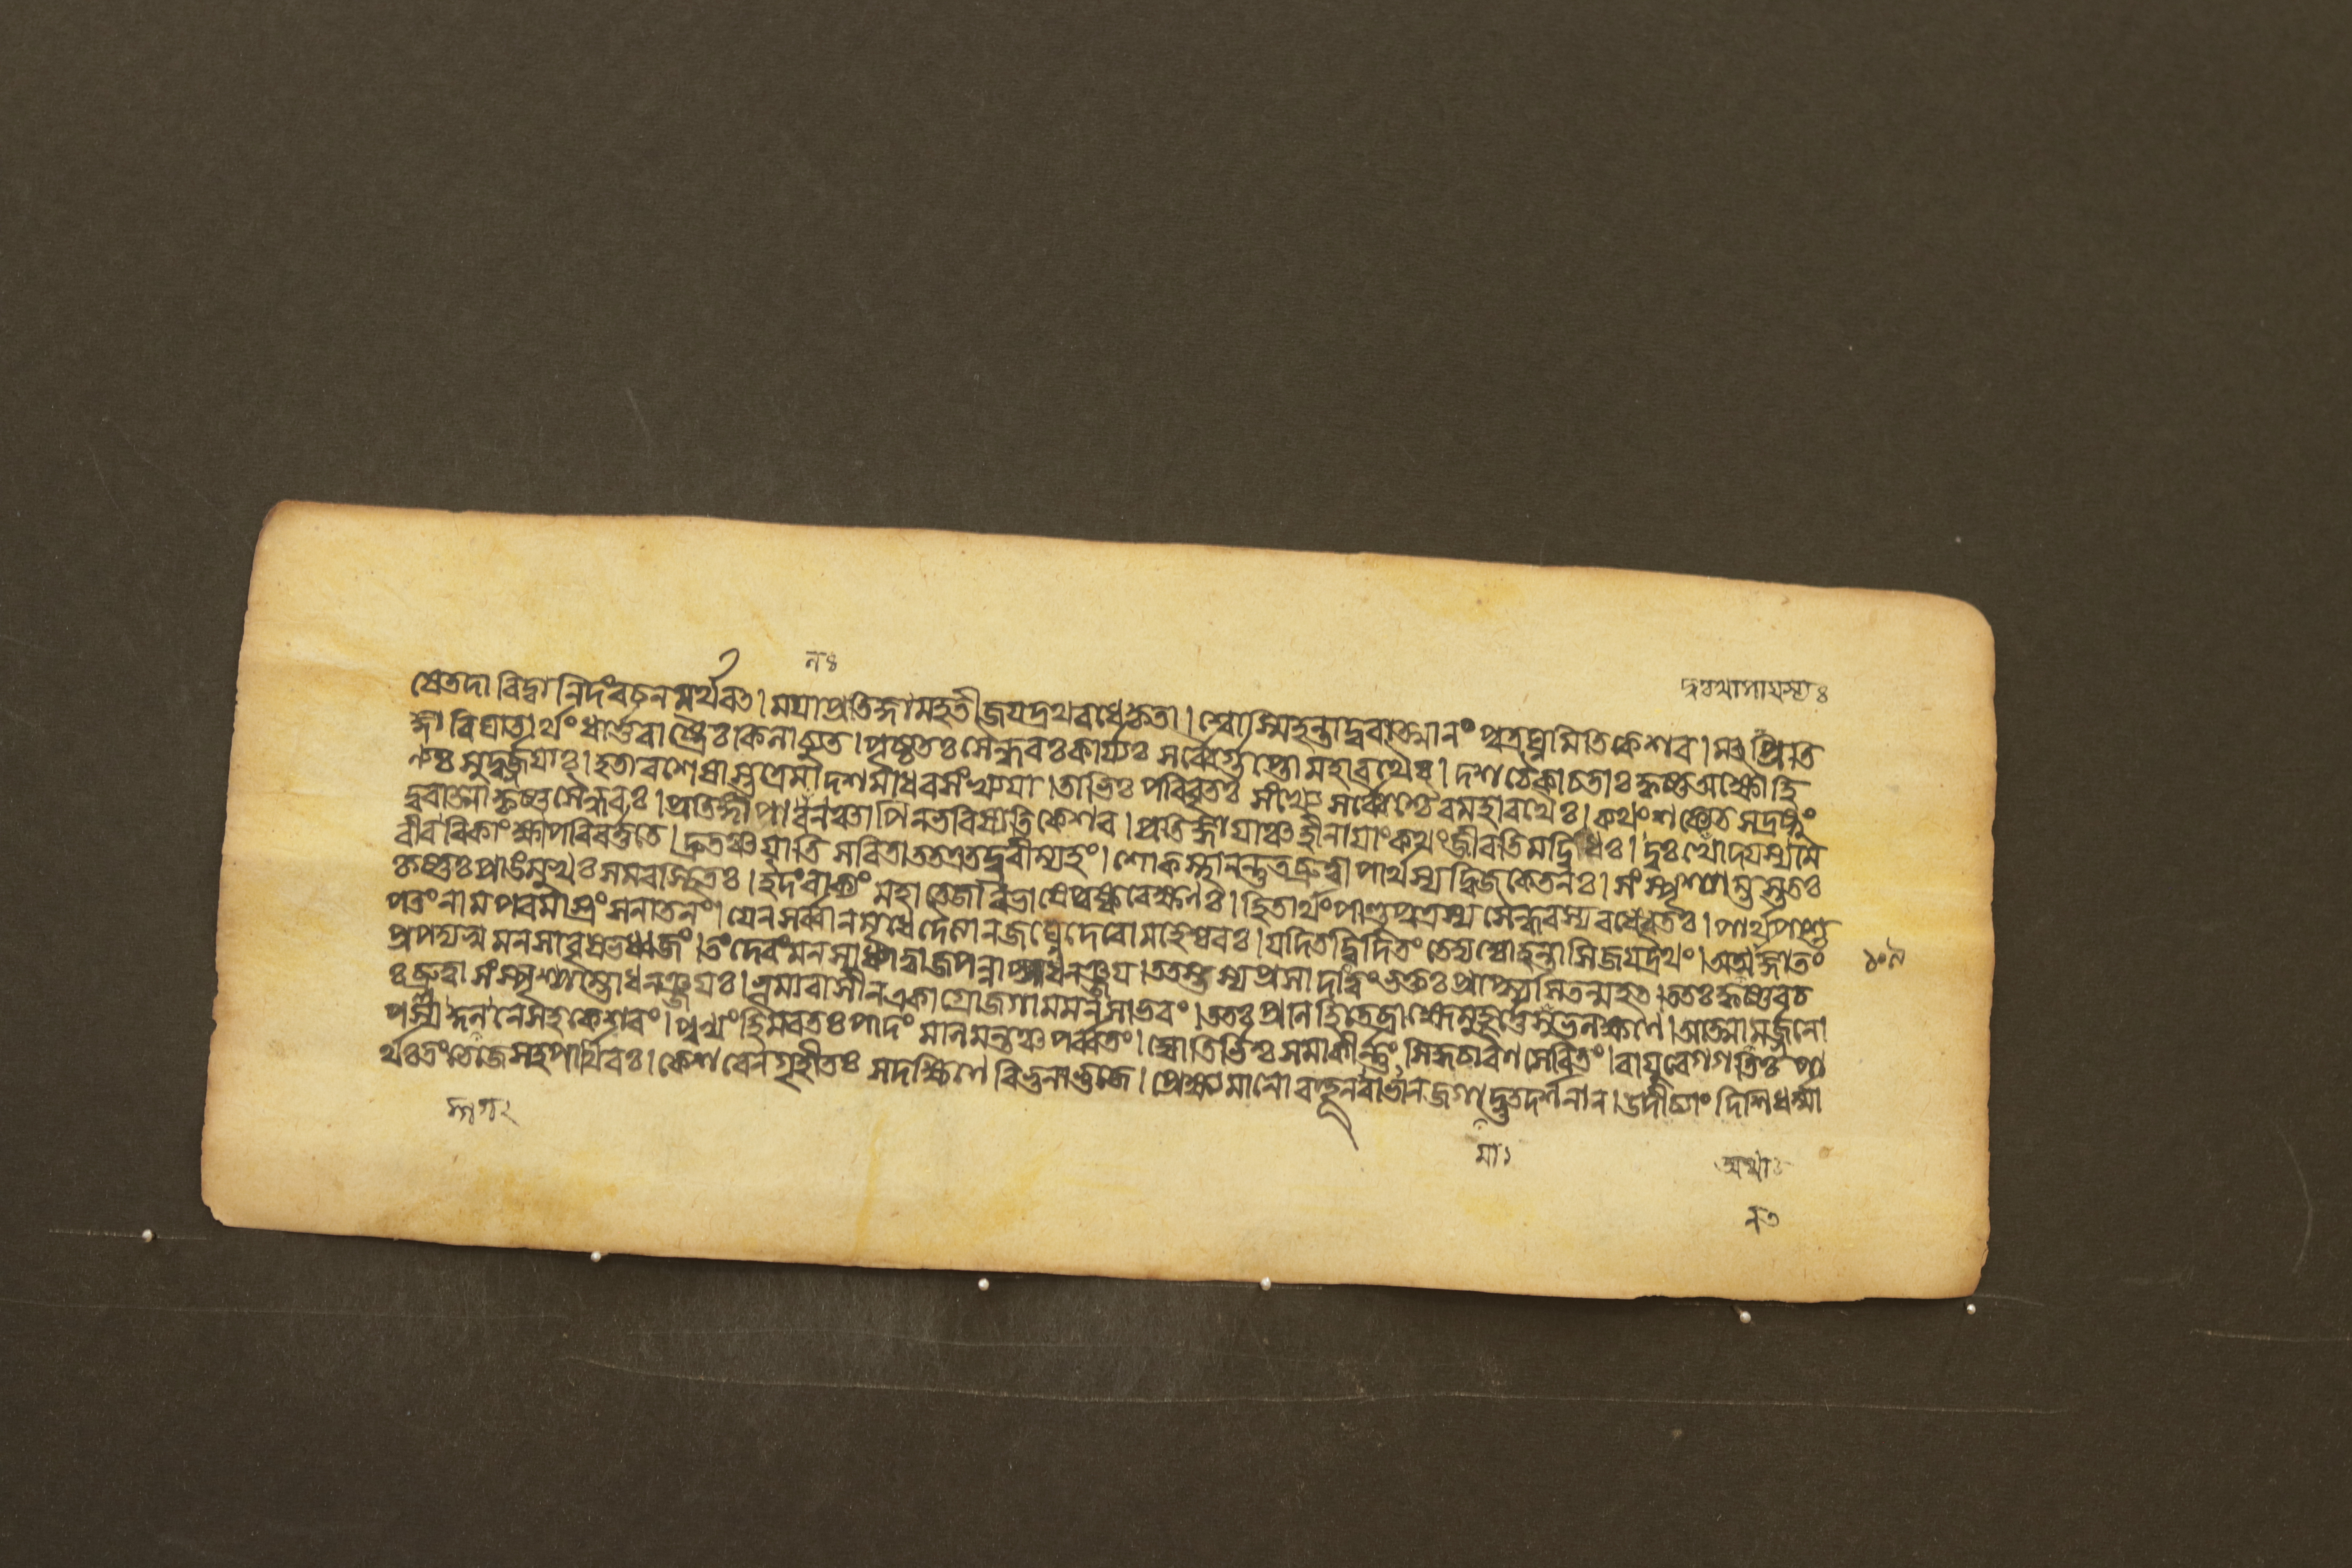 নঃ
ষেতদা বিদ্বানিদং বচনমর্থবৎ। ময়া প্রতিজ্ঞা মহতী জয়দ্রথবধে কৃতা। শ্বোস্মি হন্তা দুৰাত্মানং পুত্রঘ্নমিতি কেশৱ। মৎপ্রতি
জ্ঞা বিঘাতার্থং ধার্ত্তৰাষ্ট্রৈঃ কিলাচ্যুত। পৃষ্ঠতঃ সৈন্ধৱঃ কার্য্যঃ সর্ব্বৈর্গুপ্তো মহাৰথৈঃ। দশ চৈকা চ তাঃ কৃষ্ণ অক্ষৌহি
ণ্যঃ সুদুর্জ্জয়াঃ। হতাবশেষাস্তত্রেমা দশ মাধৱ সংখ্যয়া। তাভিঃ পরিবৃতঃ সংখ্যে সর্ব্বৈশ্চৈৱ মহাৰথৈঃ। কথং শক্যেত সংদ্রষ্টুং
দুৰাত্মা কৃষ্ণ সৈন্ধৱঃ। প্রতিজ্ঞা পাৰনঞ্চাপি ন ভবিষ্যতি কেশৱ। প্রতিজ্ঞায়াঞ্চ হীনায়াং কথং জীৱতি মদ্বিধঃ। দুঃখোপায়স্য মে
বীৰ বিকাংক্ষা পৰিৱর্ত্ততে। দ্রুতঞ্চ যাতি সবিতা তত এতদ্ব্রবীম্যহং। শোকস্থানন্তু তচ্ছ্রুত্বা পার্থস্য দ্বিজকেতনঃ। সংস্পৃশ্যাম্ভস্ততঃ
কৃষ্ণঃ প্রাঙমুখঃ সমৱস্থিতঃ। ইদং বাক্যং মহাতেজা বভাষে পুষ্কৰেক্ষণঃ। হিতার্থং পাণ্ডুপুত্রস্য সৈন্ধৱস্য বধে বৃতঃ। পার্থ পাশু
পতং নাম পৰমাস্ত্রং সনাতনং। যেন সর্ব্বান মৃধে দৈত্যান জঘ্নে দেৱো মহেশ্বৰঃ। যদি তদ্বিদিতং তেদ্য শ্বো হন্তাসি জয়দ্রথং। অথ জ্ঞাতং
প্রপদ্যস্ব মনসা বৃষভধ্বজং। তং দেৱং মনসা ধ্যাত্বা জপন্নাস্ব ধনঞ্জয়। ততস্তস্য প্রসাদাত্ত্বং ভক্তঃ প্রাপ্স্যসি তন্মহৎ। ততঃ কৃষ্ণৱচ
ঃ শ্রুত্বা সংস্পৃশ্যাম্ভো ধনঞ্জয়ঃ। ভূমাৱাসীন একাগ্রো জগাম মনসা ভৱং। ততঃ প্রণিহিতে ব্রাহ্মে মুহূর্ত্তে শুভলক্ষণে। আত্মানমর্জ্জুনো
পশ্যদ্গগনে সহকেশৱং। পুণ্যং হিমৱতঃ পাদং মণিমন্তঞ্চ পর্ব্বতং। জ্যোতির্ভিশ্চ সমাকীর্ণ্ণং সিদ্ধচাৰণসেৱিতং। বায়ুৱেগগতিঃ পা
র্থঃ তং ভেজে সহ পার্থিৱঃ। কেশৱেন গৃহীতঃ স দক্ষিণে বিভুনা ভুজে। প্রেক্ষমাণো বহূন ভাৱান জগামাদ্ভুতদর্শনান। উদীচ্যাং দিশি ধর্ম্মা
মা১
নত